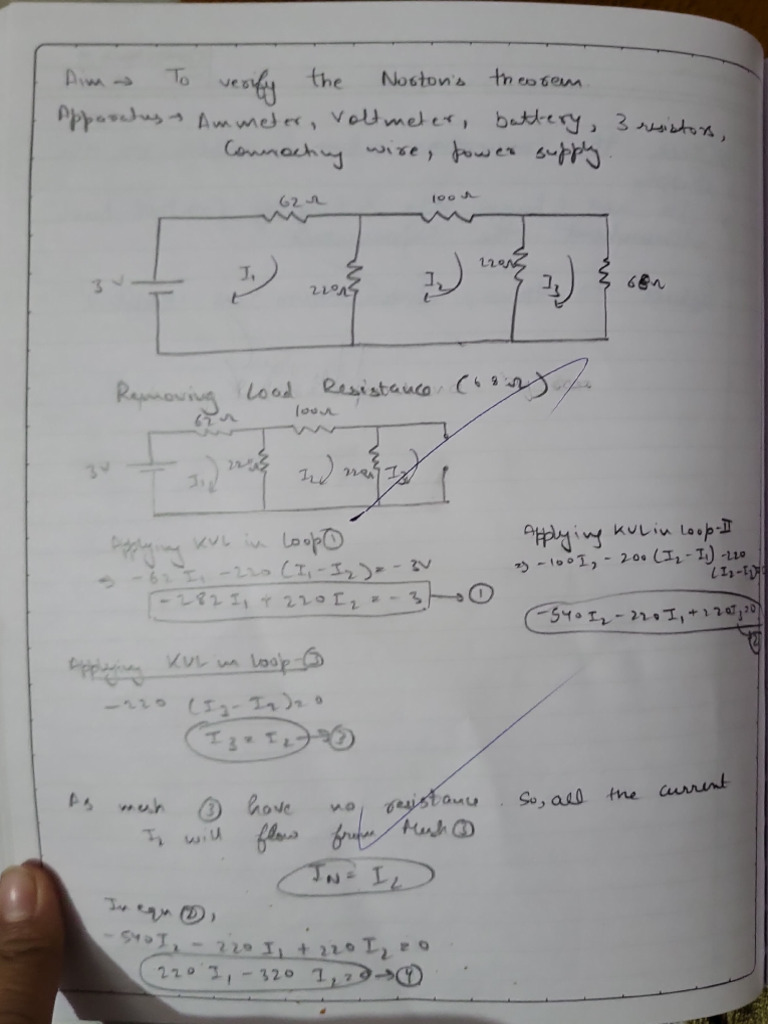 Aim → To verify the Norton's theorem
Apparatus → Ammeter, Voltmeter, battery, 3 resistors,
Connecting wire, power supply.
62Ω 100Ω
3V I₁ 220Ω I₂ 220Ω I₃ 68Ω
Removing Load Resistance (68Ω)
62Ω 100Ω
3V I₁ 220Ω I₂ 220Ω I₃
Applying KVL in loop ①
⇒ -62 I₁ -220 (I₁-I₂) = -3V
-282 I₁ + 220 I₂ = -3 → ①
Applying KVL in loop-II
⇒ -100I₂ - 200 (I₂-I₁) -220
(I₂-I₃)=0
-540 I₂ - 220 I₁ + 220I₃=0
②
Applying KVL in loop-③
-220 (I₃-I₂)=0
I₃ = I₂ → ③
As mesh ③ have no resistance. So, all the current
I₂ will flow from Mesh ③
IN = I₂
In eqn ②,
-540I₂ - 220 I₁ + 220 I₂ = 0
220 I₁ - 320 I₂ = 0 → ④